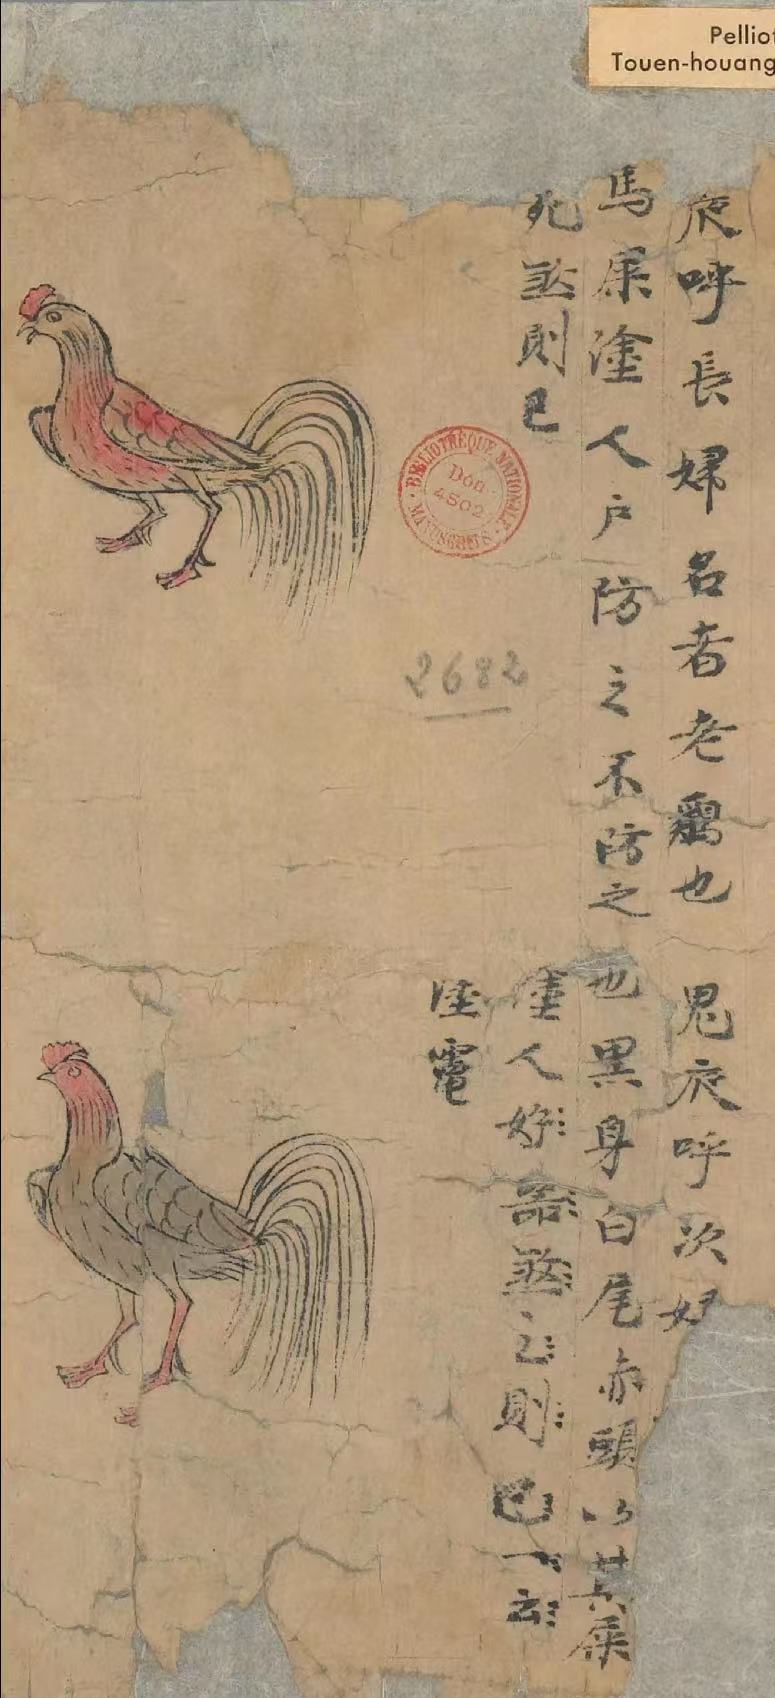 Pelliot
Touen-houang
夜呼長婦名者老鷄也
馬屎塗人戶防之不防之
死煞則已
鬼夜呼次
也黑身白尾赤頭以其屎
塗人好器煞之則已一云
塗竈
BIBLIOTHÈQUE NATIONALE
MANUSCRITS
Don
4502
2682